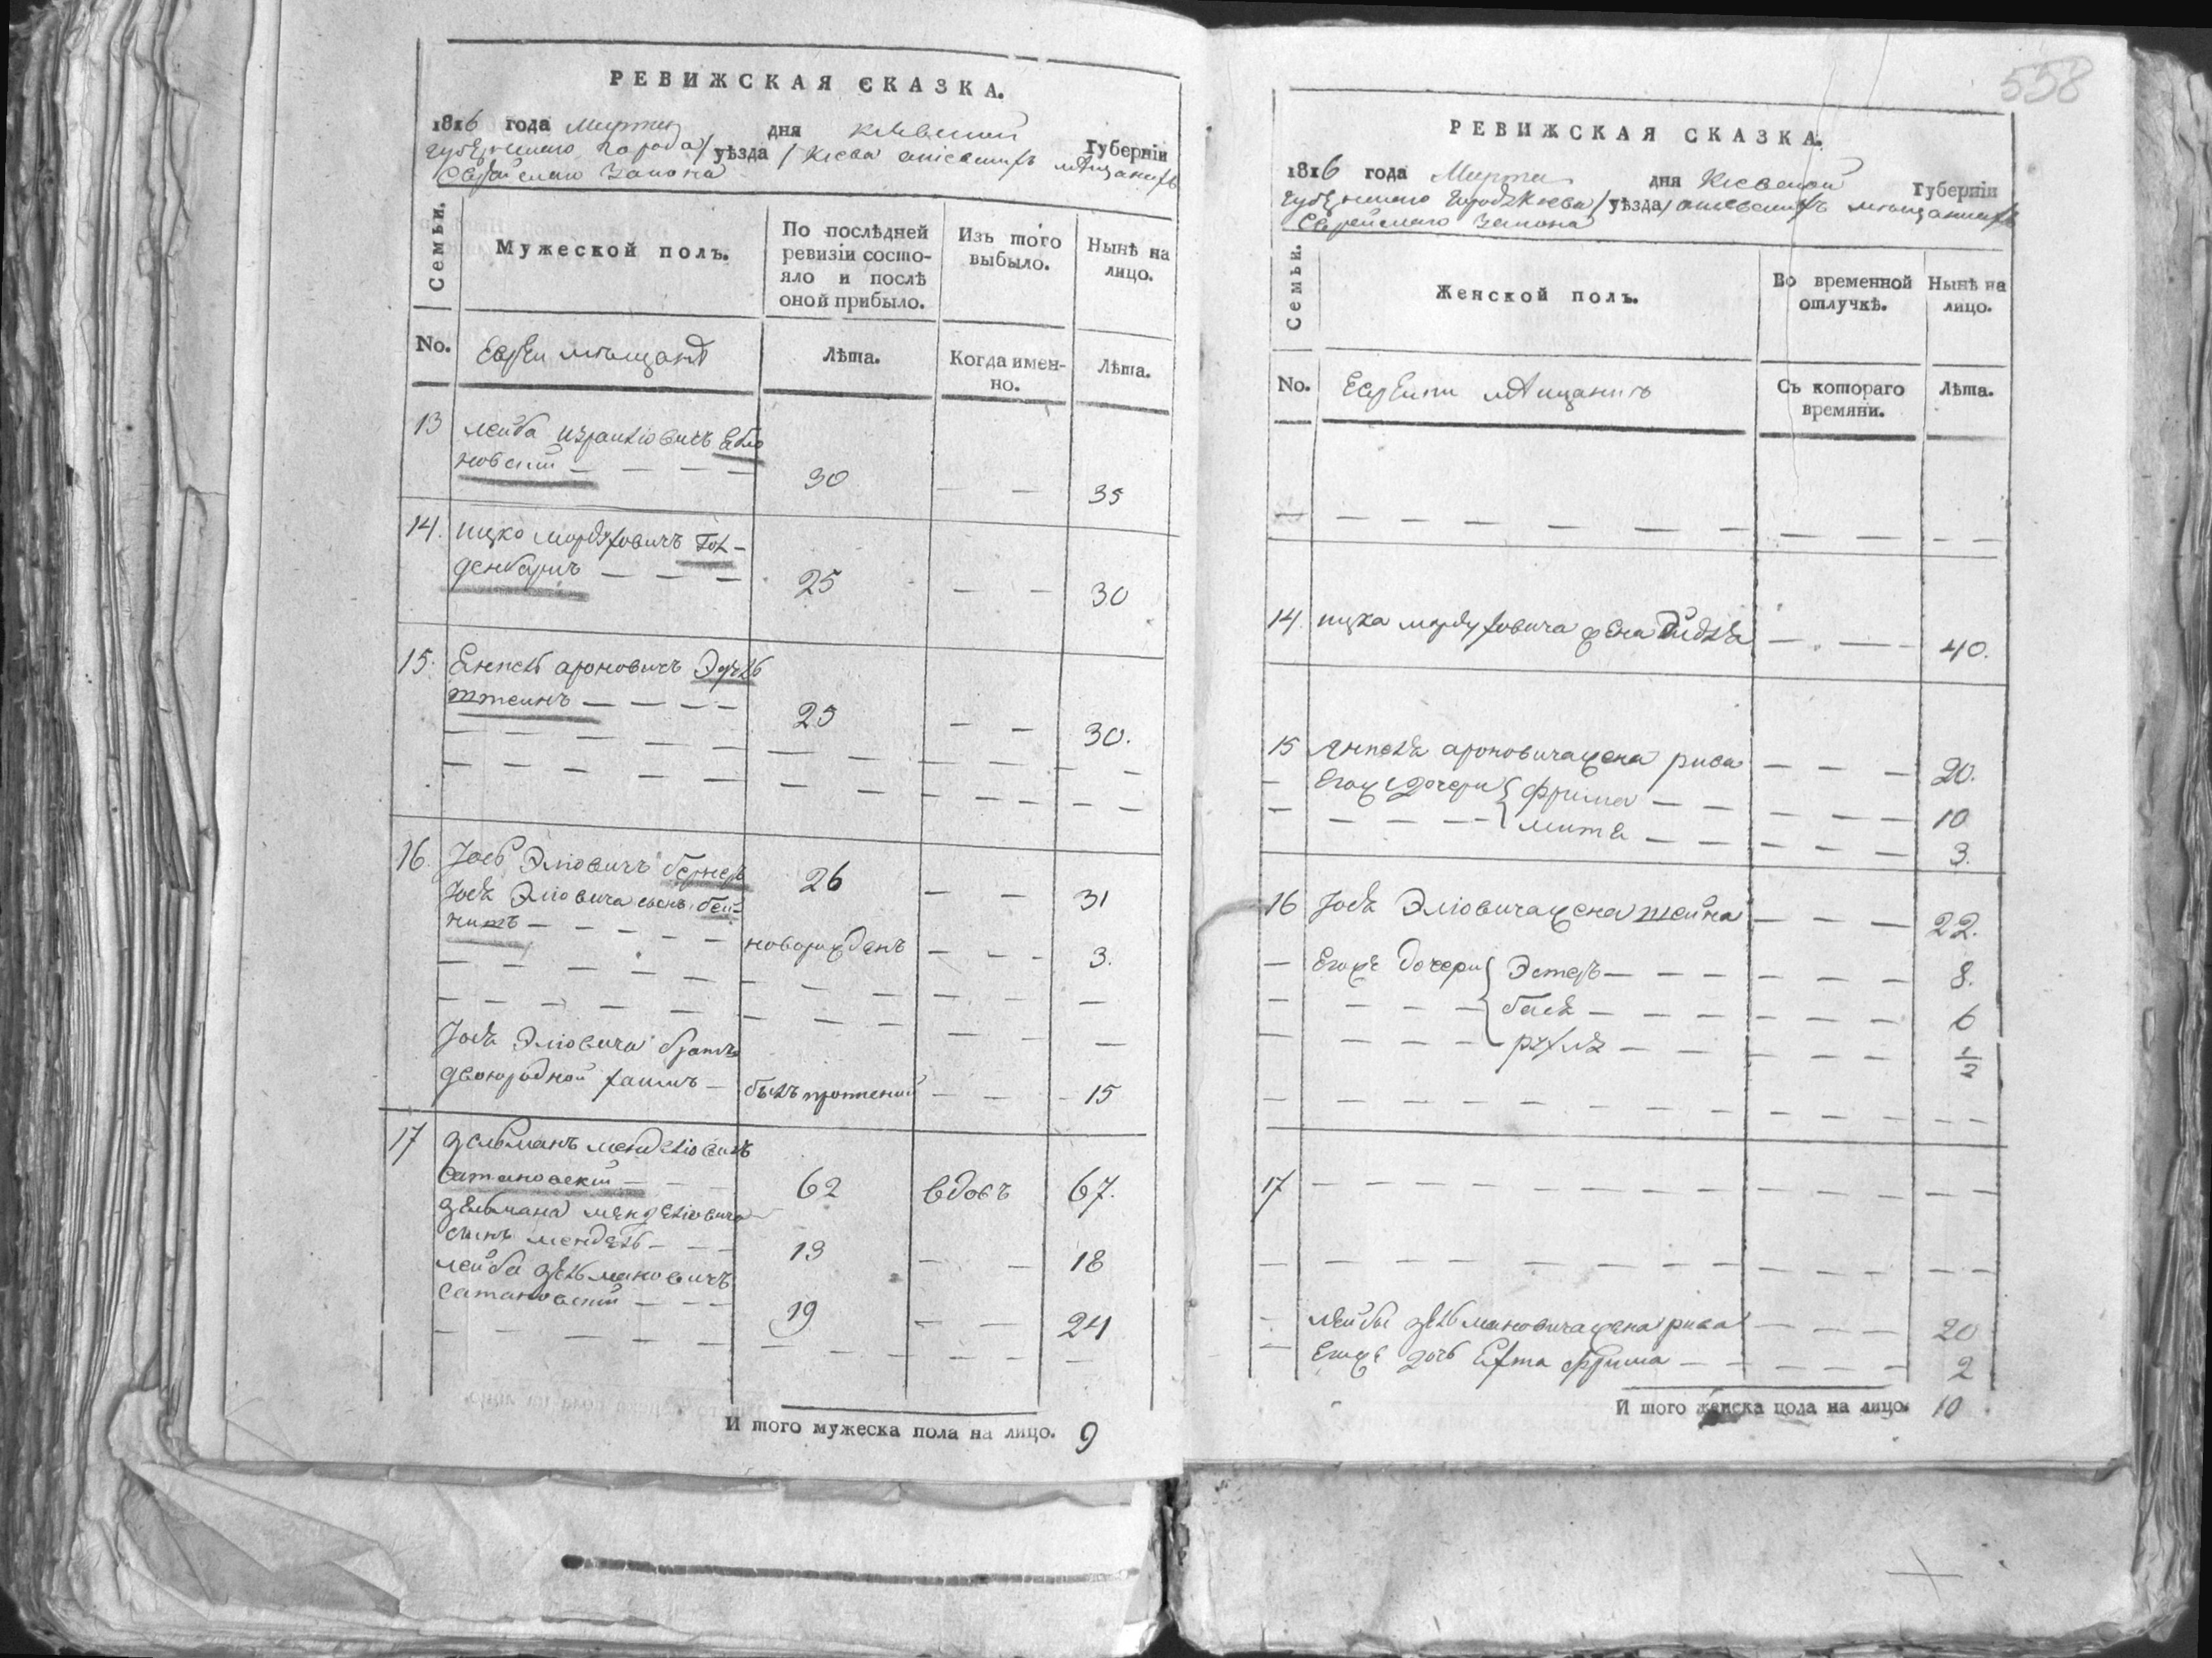 РЕВИЖСКАЯ СКАЗКА.
1816 года Марта дня Кіевской Губерніи
губернского города / уѣзда / Кіева мѣщанъ
Еврейского Закона
Семьи.
Мужеской полъ.
По послѣдней ревизіи состо-
яло и послѣ
оной прибыло.
Изъ того
выбыло.
Нынѣ на
лицо.
No.
Евреи мѣщане
Лѣта.
Когда имен-
но.
Лѣта.
13 лейба Израиліовичъ
новский — — — — 30 — — 35
14. ицко мордуховичъ Гол-
денбаргъ — — — 25 — — 30
15. Енкель ароновичъ
штеинъ — — — — 25 — — 30.
16. Іось Эліовичъ бернеръ 26 — — 31
Іося Эліовича сынъ
— — — — — новорожденъ — — - 3.
Іося Эліовича братъ
двоюродной хаимъ — былъ — — - 15
17 зельманъ менделіовичъ
Сатановский — — — 62 вдовъ 67.
зельмана менделіовича
сынъ мендель — — — 13 — — 18
лейба зельмановичъ
Сатановский — — — 19 — — 24
И того мужеска пола на лицо. 9
558
РЕВИЖСКАЯ СКАЗКА.
1816 года Марта дня Кіевской Губерніи
губернского города Кіева / уѣзда / мѣщанъ
Еврейского Закона
Семьи.
Женской полъ.
Во временной
отлучкѣ.
Нынѣ на
лицо.
No.
мѣщанъ
Съ котораго
времяни.
Лѣта.
14. ицка мордуховича жена — — - 40.
15 Янкеля ароновича жена рива — — — 20.
— Егожъ дочери { фрима — — — — — 10
— — — — — { — — — — — — 3.
16 Іося Эліовича жена шейна — — — 22.
— Егожъ дочери { Эстеръ — — — — — — 8.
— — — — { бася — — — — — — — 6
— — — — — рухля — — — — — — 1/2
17
- лейбы зельмановича жена рива — — — 20
— Егожъ дочь фрима — — — — — 2
И того женска пола на лицо. 10